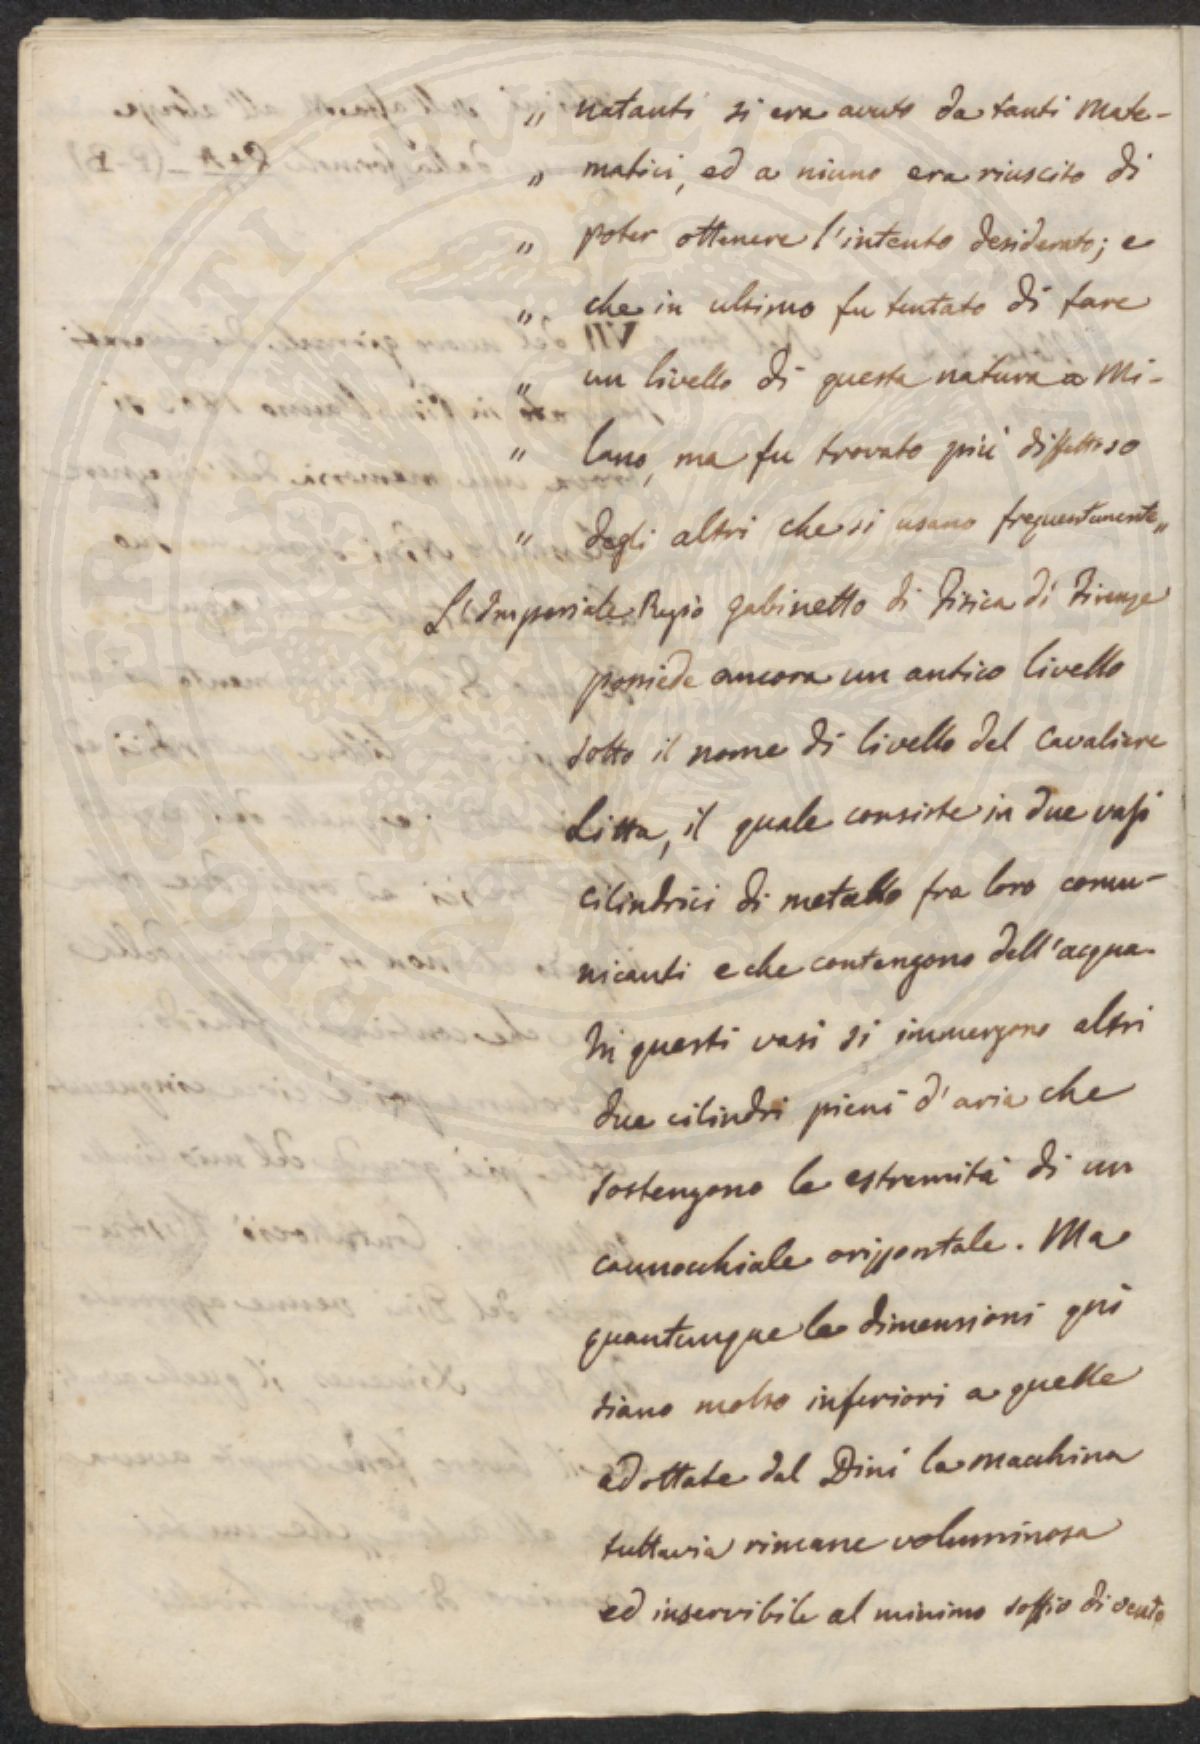 „ natanti si era avuto da tanti Mate-
„ matici, ed a niuno era riuscito di
„ poter ottenere l'intento desiderato; e
„ che in ultimo fu tentato di fare
„ un livello di questa natura a Mi-
„ lano, ma fu trovato più difettoso
„ degli altri che si usano frequentemente„
L'Imperiale Regio gabinetto di Fisica di Firenze
possiede ancora un antico livello
sotto il nome di livello del Cavaliere
Litta, il quale consiste in due vasi
cilindrici di metallo fra loro comu-
nicanti e che contengono dell'acqua.
In questi vasi si immergono altri
due cilindri pieni d'aria che
sostengono le estremità di un
cannocchiale orizzontale. Ma
quantunque le dimensioni qui
siano molto inferiori a quelle
adottate dal Dini la macchina
tuttavia rimane voluminosa
ed inservibile al minimo soffio di vento